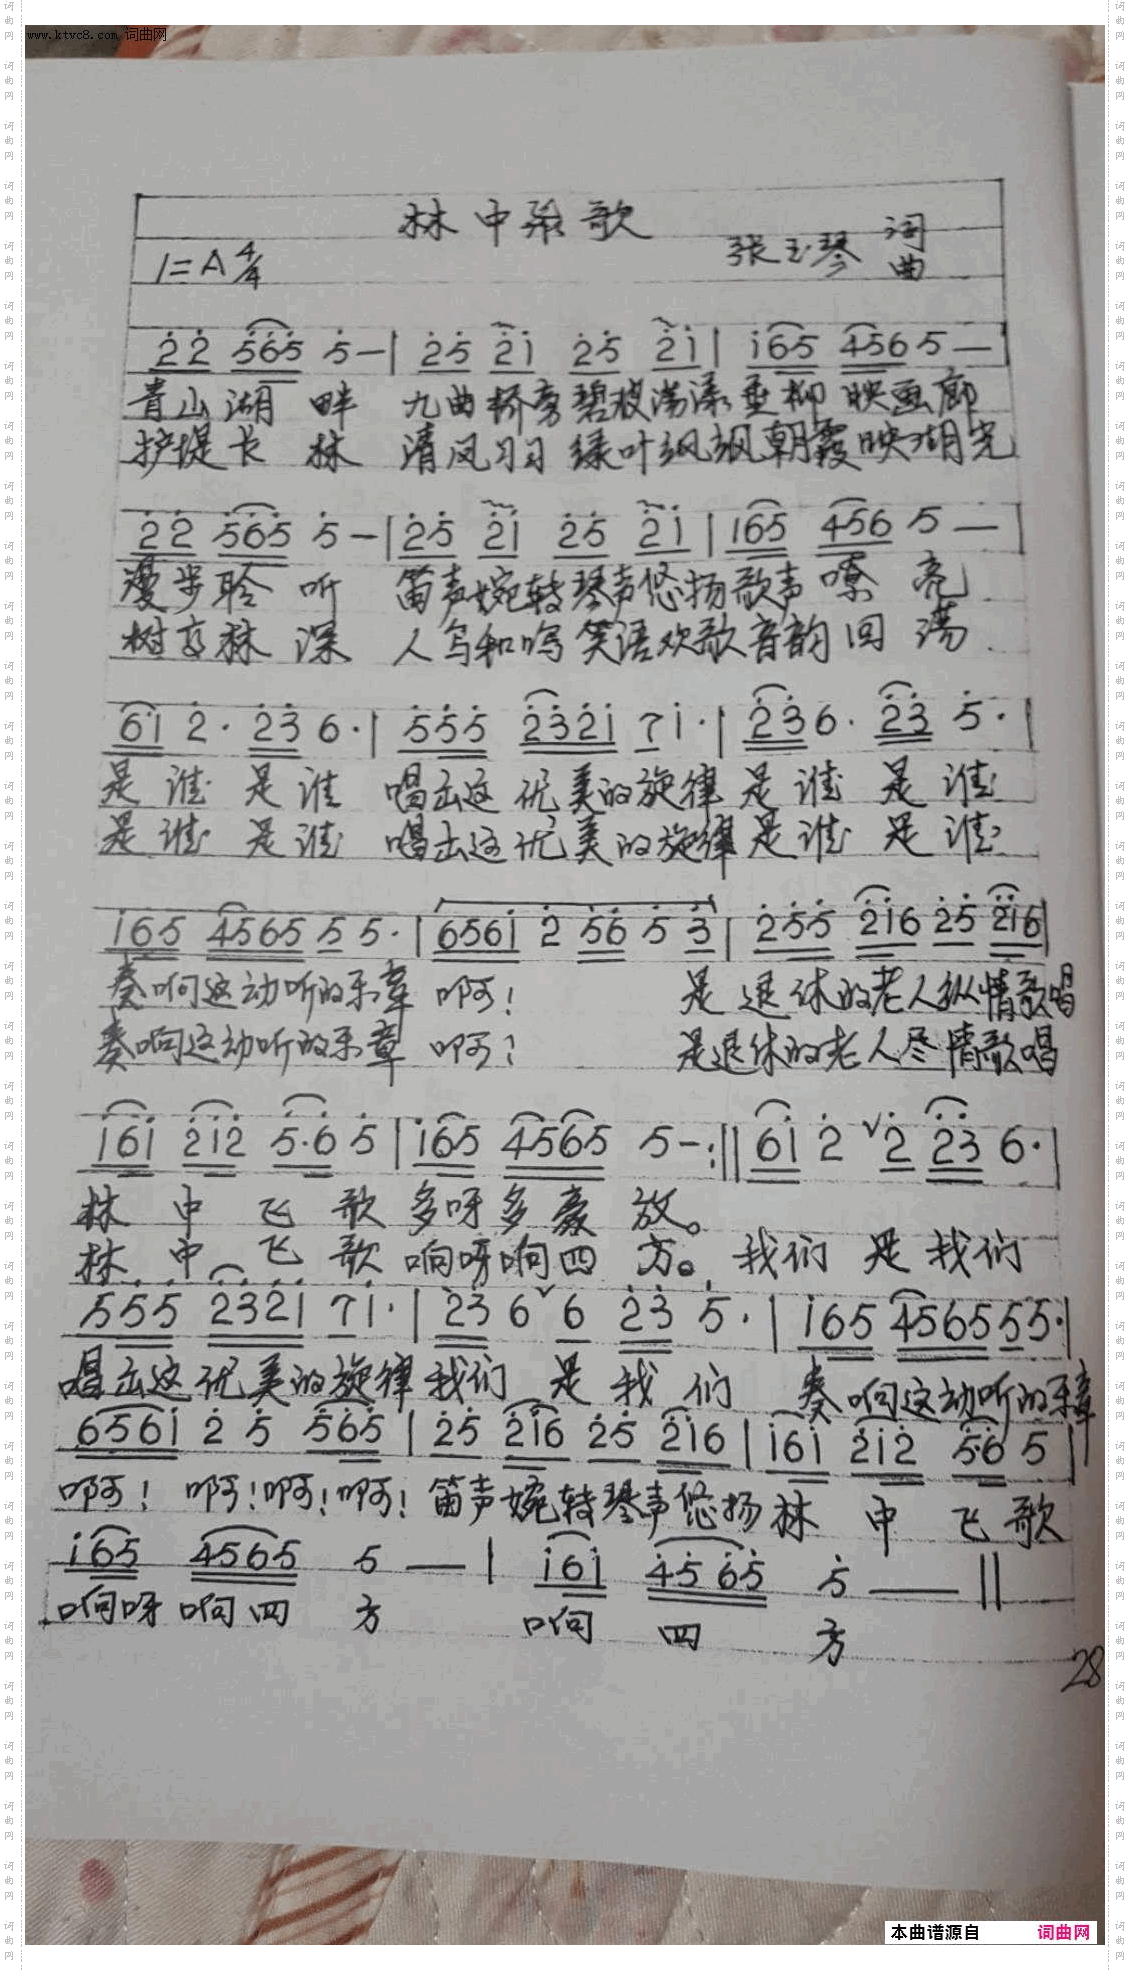 www.ktvc8.com 词曲网
林中飞歌
1=A 4/4 张玉琴 词
曲
2̇2̇ 5̇6̇5̇ 5̇—| 2̇5̇ 2̇i 2̇5̇ 2̇i | i65 4565—
青山湖畔 九曲桥旁碧波荡漾垂柳映画廊
护堤长林 清风习习绿叶飒飒朝霞映湖光
2̇2̇ 5̇6̇5̇ 5̇—| 2̇5̇ 2̇i 2̇5̇ 2̇i | 165 456 5—|
漫步聆听 笛声婉转琴声悠扬歌声嘹亮
树高林深 人鸟和鸣笑语欢歌音韵回荡
6i 2̇· 2̇3̇ 6·| 5̇5̇5̇ 2̇3̇2̇i 7i·| 2̇3̇ 6· 2̇3̇ 5̇·|
是谁 是谁 唱出这优美的旋律 是谁 是谁
是谁 是谁 唱出这优美的旋律 是谁 是谁
i65 4565 5 5·| 656i 2̇ 5̇6̇ 5̇ 3̇ | 2̇5̇5̇ 2̇i6 2̇5̇ 2̇i6|
奏响这动听的乐章 啊! 是退休的老人纵情歌唱
奏响这动听的乐章 啊! 是退休的老人尽情歌唱
i6i 2̇i2̇ 5̇·6̇ 5̇ | i65 4565 5-:|| 6i 2̇ ∨2̇ 2̇3̇ 6·|
林中飞歌 多呀多豪放。
林中飞歌 响呀响四方。 我们是我们
5̇5̇5̇ 2̇3̇2̇i 7i·| 2̇3̇ 6∨6 2̇3̇ 5̇·| i65 4565 55·|
唱出这优美的旋律 我们是我们 奏响这动听的乐章
656i 2̇ 5̇ 5̇6̇5̇ | 2̇5̇ 2̇i6 2̇5̇ 2̇i6 | i6i 2̇i2̇ 5̇·6̇ 5̇ |
啊! 啊!啊!啊! 笛声婉转琴声悠扬林中飞歌
i65 4565 5 —| i6i 4̇5̇6̇5̇ 5̇ —||
响呀响四方 响四方
28
本曲谱源自 词曲网